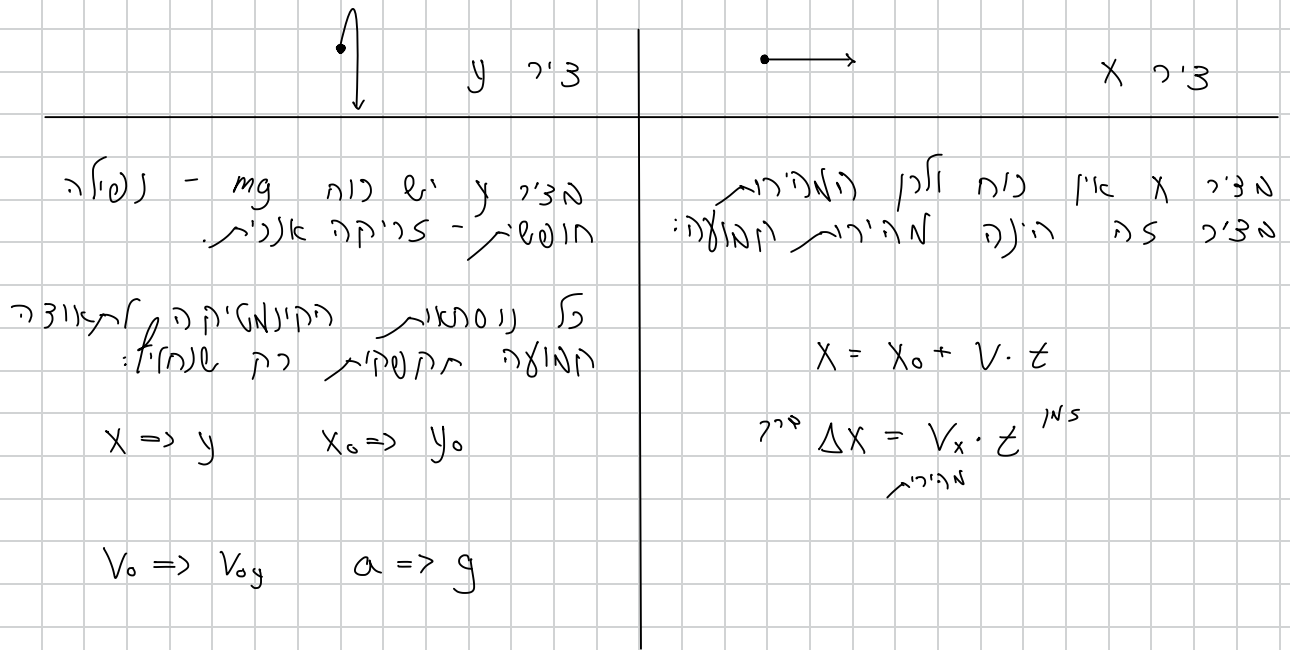 ציר x
מציר x אין כוח ולכן המהירות
מציר זה הינה מהירות קבועה:
x = x₀ + v · t
דרך Δx = Vₓ · t זמן
מהירות
ציר y
מציר y יש כוח mg - נפילה
חופשית - זריקה אנכית.
כל נוסחאות הקינמטיקה לתאוצה
קבועה תקפות רק שנחליף:
x => y x₀ => y₀
V₀ => V₀y a => g